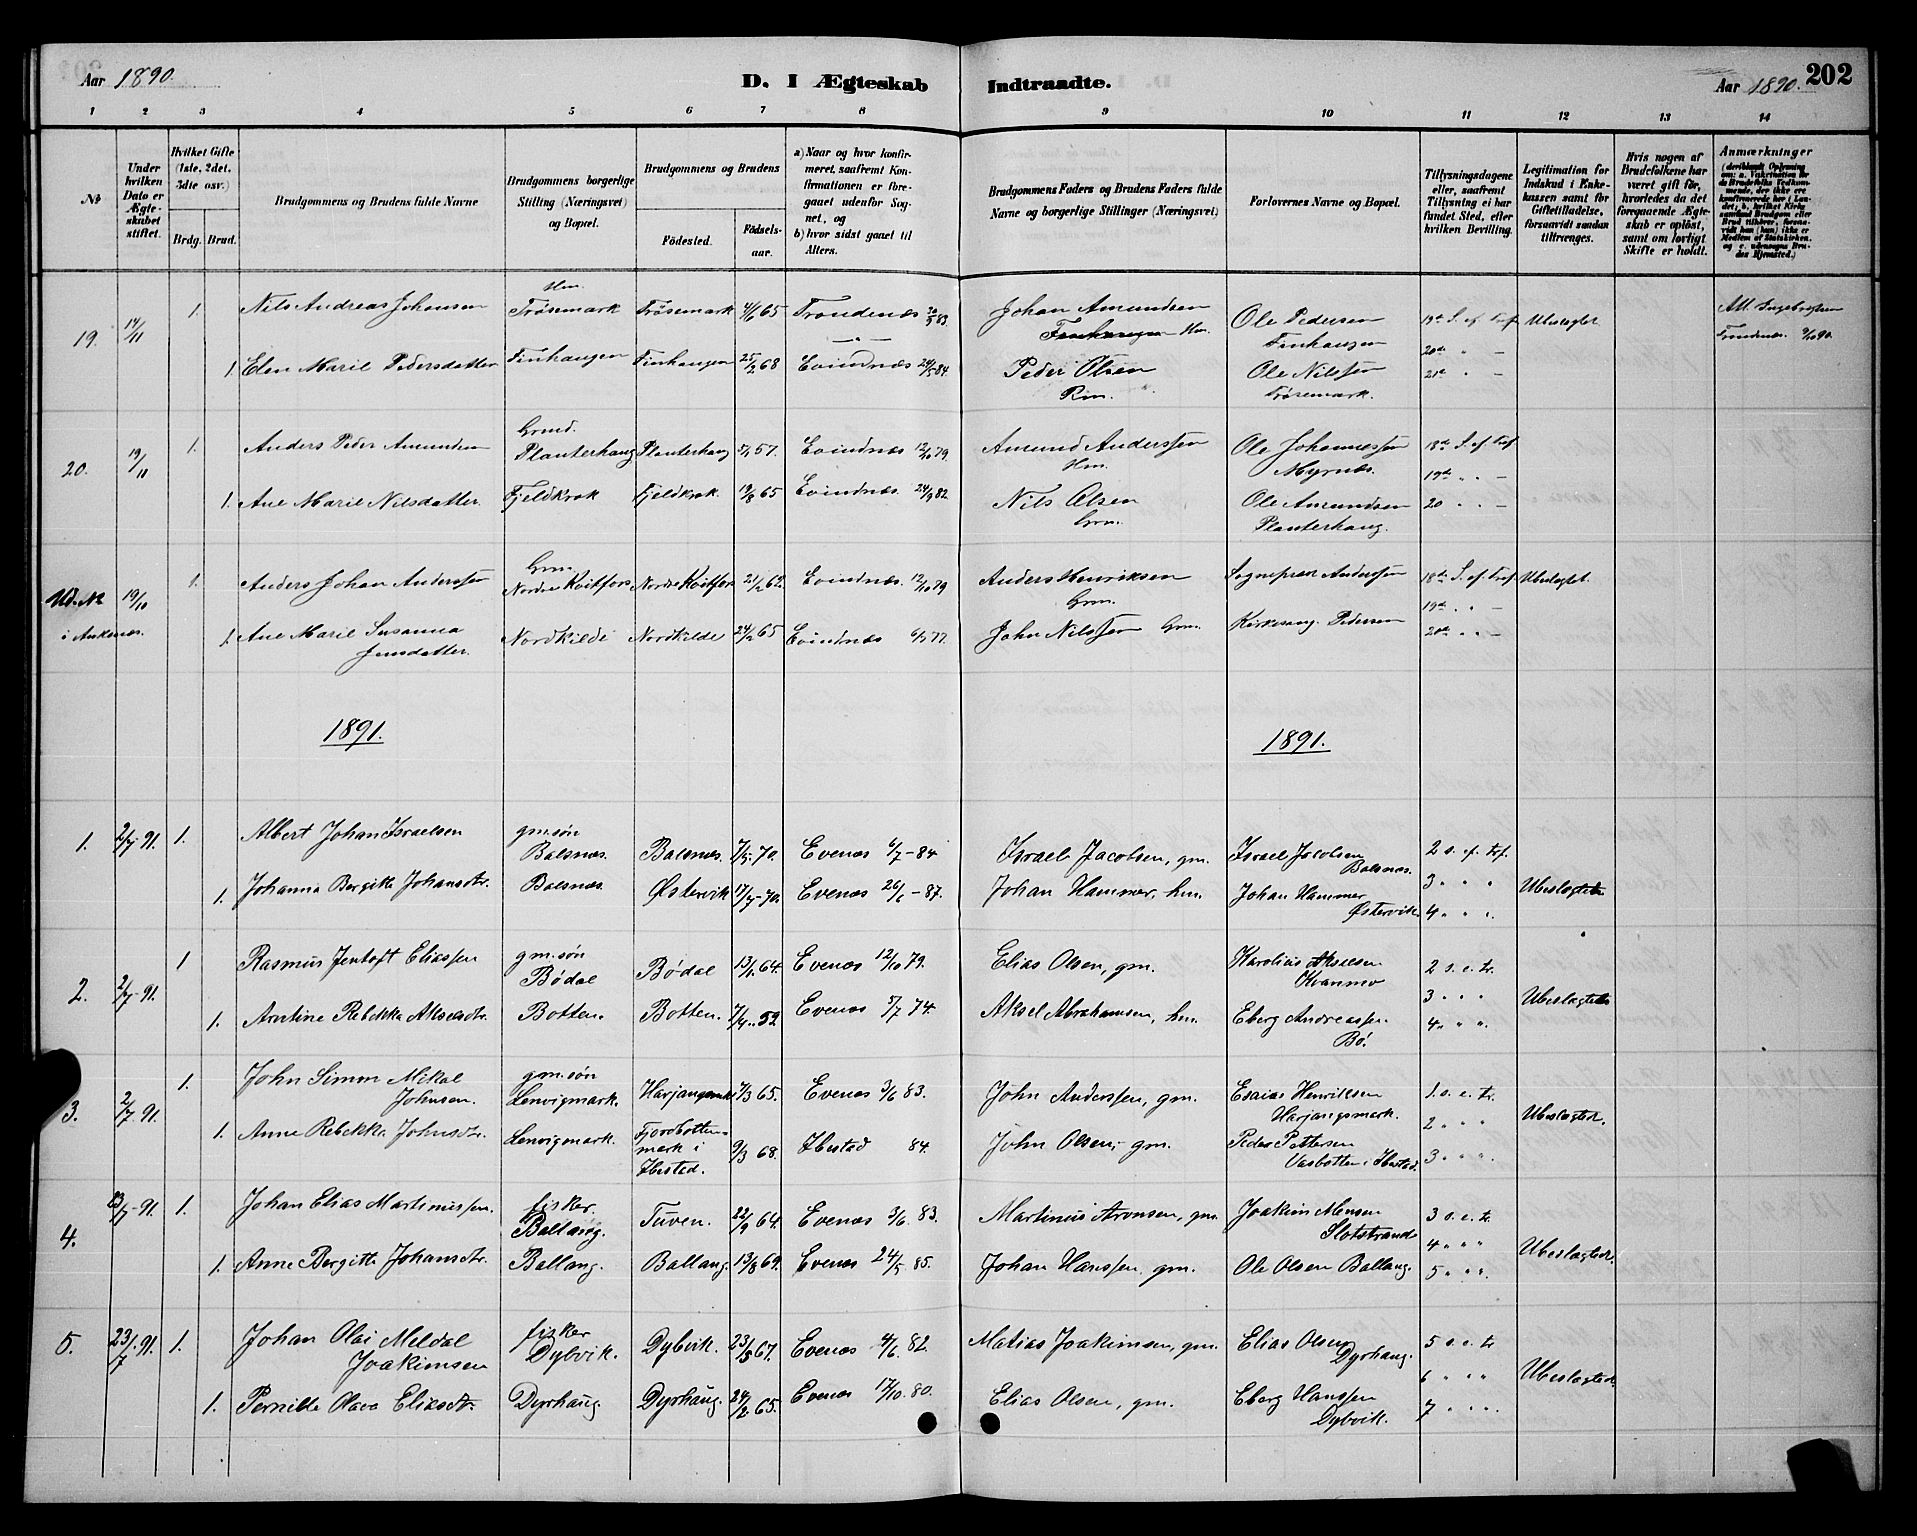 Aar 1890.
D. I Ægteskab Indtraadte.
Aar 1890. 202
1 2 3 4 5 6 7 8 9 10 11 12 13 14
No
Under hvilken Dato er Ægteskabet stiftet.
Hvilket Gifte (1ste, 2det, 3die osv.)
Brdg. Brud.
Brudgommens og Brudens fulde Navne
Brudgommens borgerlige Stilling (Næringsvei) og Bopæl.
Brudgommens og Brudens
Födested. Födselsaar.
a) Naar og hvor konfirmeret, saafremt Konfirmationen er foregaaet udenfor Sognet, og
b) hvor sidst gaaet til Alters.
Brudgommens Faders og Brudens Faders fulde Navne og borgerlige Stillinger (Næringsvei)
Forlovernes Navne og Bopæl.
Tillysningsdagene eller, saafremt Tillysning ei har fundet Sted, efter hvilken Bevilling.
Legitimation for Indskud i Enkekassen samt for Giftetilladelse, forsaavidt saadan tiltrænges.
Hvis nogen af Brudefolkene har været gift før, hvorledes da det foregaaende Ægteskab er oplöst, samt om lovligt Skifte er holdt.
Anmærkninger
19. 14/11 1. Nils Andreas Johansen Hm. Trøsemark Trøsemark 4/6 65 Trondenæs 83. Johan Amundsen Hm. Ole Pedersen Finhaugen 19de S. ef. Tref. Ubeslægtet
1. Elen Marie Pedersdatter Finhaugen Finhaugen 25/2 68 Evindnæs 84. Peder Olsen Rm. Ole Nilssen Trøsemark. 20de " – 21de " –
20. 19/10 1. Anders Peder Amundsen Grmd. Planterhaug Planterhaug 57. Evindnæs 12/10 79. Amund Anderssen Hm. Ole Johannessen Myrnæs. 18de S. ef. Tref
1. Ane Marie Nilsdatter. Fjeldkrok Fjeldkrok. 19/8 65 Evindnæs. 24/9 82. Nils Olsen Grm. Ole Amundsen Planterhaug. 19de " – 20 " –
Ud. N i Ankenes. 19/10 1. Anders Johan Anderssen Grm. Nordre Kvitfors Nordre Kvitfors 21/2 62. Evindnæs. 12/10 79 Anders Henriksen Grm. Sogneprest Anderssen 18de S. ef. Tref Ubeslægtet.
1. Ane Marie Susanna Jensdatter. Nordkilde Nordkilde 24/2 65 Evindnæs 77. John Nilssen Grm. Kirkesang. Pedersen 19de " – 20de " –
1891. 1891.
1. 2/7 91. 1. Albert Johan Israelsen gm. søn Balsnes. Balsnes. 7/5 70. Evenes 6/7 – 84 Israel Jacobsen, gm. Israel Jacobsen Balsnes. 2 s. ef. tref.
1. Johanna Bergitte Johansdtr. Balsnes. Østervik 17/4 – 70. Evenes 26/6 – 87. Johan Hammer, hm. Johan Hammer Østervik. 3 " " 4 " " Ubeslægtet
2. 2/7 91. 1 Rasmus Jentoft Eliassen gm. søn Bødal Bødal 13/1 64. Evenes 12/10 79. Elias Olsen, gm. Karolius Akselsen Kvanmo 2 s. e. tr.
1. Arntine Rebekka Akselsdtr. Botten. Botten. 7/4 52 Evenes 5/7 74. Aksel Abrahamsen, hm. Eberg Andreassen Bø. 3 " " 4 " " Ubeslægtet
3. 2/7 91. 1. John Simon Mikal Johnsen. gm. søn Lenvigmark. Harjangsmark 7/3 65. Evenes 3/6 83. John Anderssen, gm. Esaias Henriksen Harjangsmark. 1. s. e. tr. Ubeslægted.
1. Anne Rebekka Johnsdtr. Lenvigmark. Fjordbottenmark i Ibestad. 9/3 68. Ibestad 84. John Olsen, gm. Peder Pettersen Vasbotten i Ibestad. 2 " " 3 " "
4. 13/7 – 91. 1. Johan Elias Martinussen. fisker. Ballang. Tuven. 22/9 64. Evenes 3/6 83. Martinus Aronsen, gm. Joakim Monsen Slotstrand 3 s. e. tr.
1. Anne Bergitte Johansdtr. Ballang. Ballang. 13/8 69. Evenes 24/5 85. Johan Hanssen, gm. Ole Olsen Ballang. 4 " " 5 " " Ubeslægted.
5. 23/7 91. 1. Johan Olai Meldal Joakimsen fisker Dybvik. Dybvik. 23/5 67. Evenes 4/6 82. Matias Joakimsen, gm. Elias Olsen Dyrhaug. 5 s. e. tr
1. Pernille Olava Eliasdtr. Dyrhaug. Dyrhaug. 24/2 65. Evenes 17/10 80. Elias Olsen, gm. Eberg Hanssen Dybvik. 6 " " 7 " " Ubeslægted.